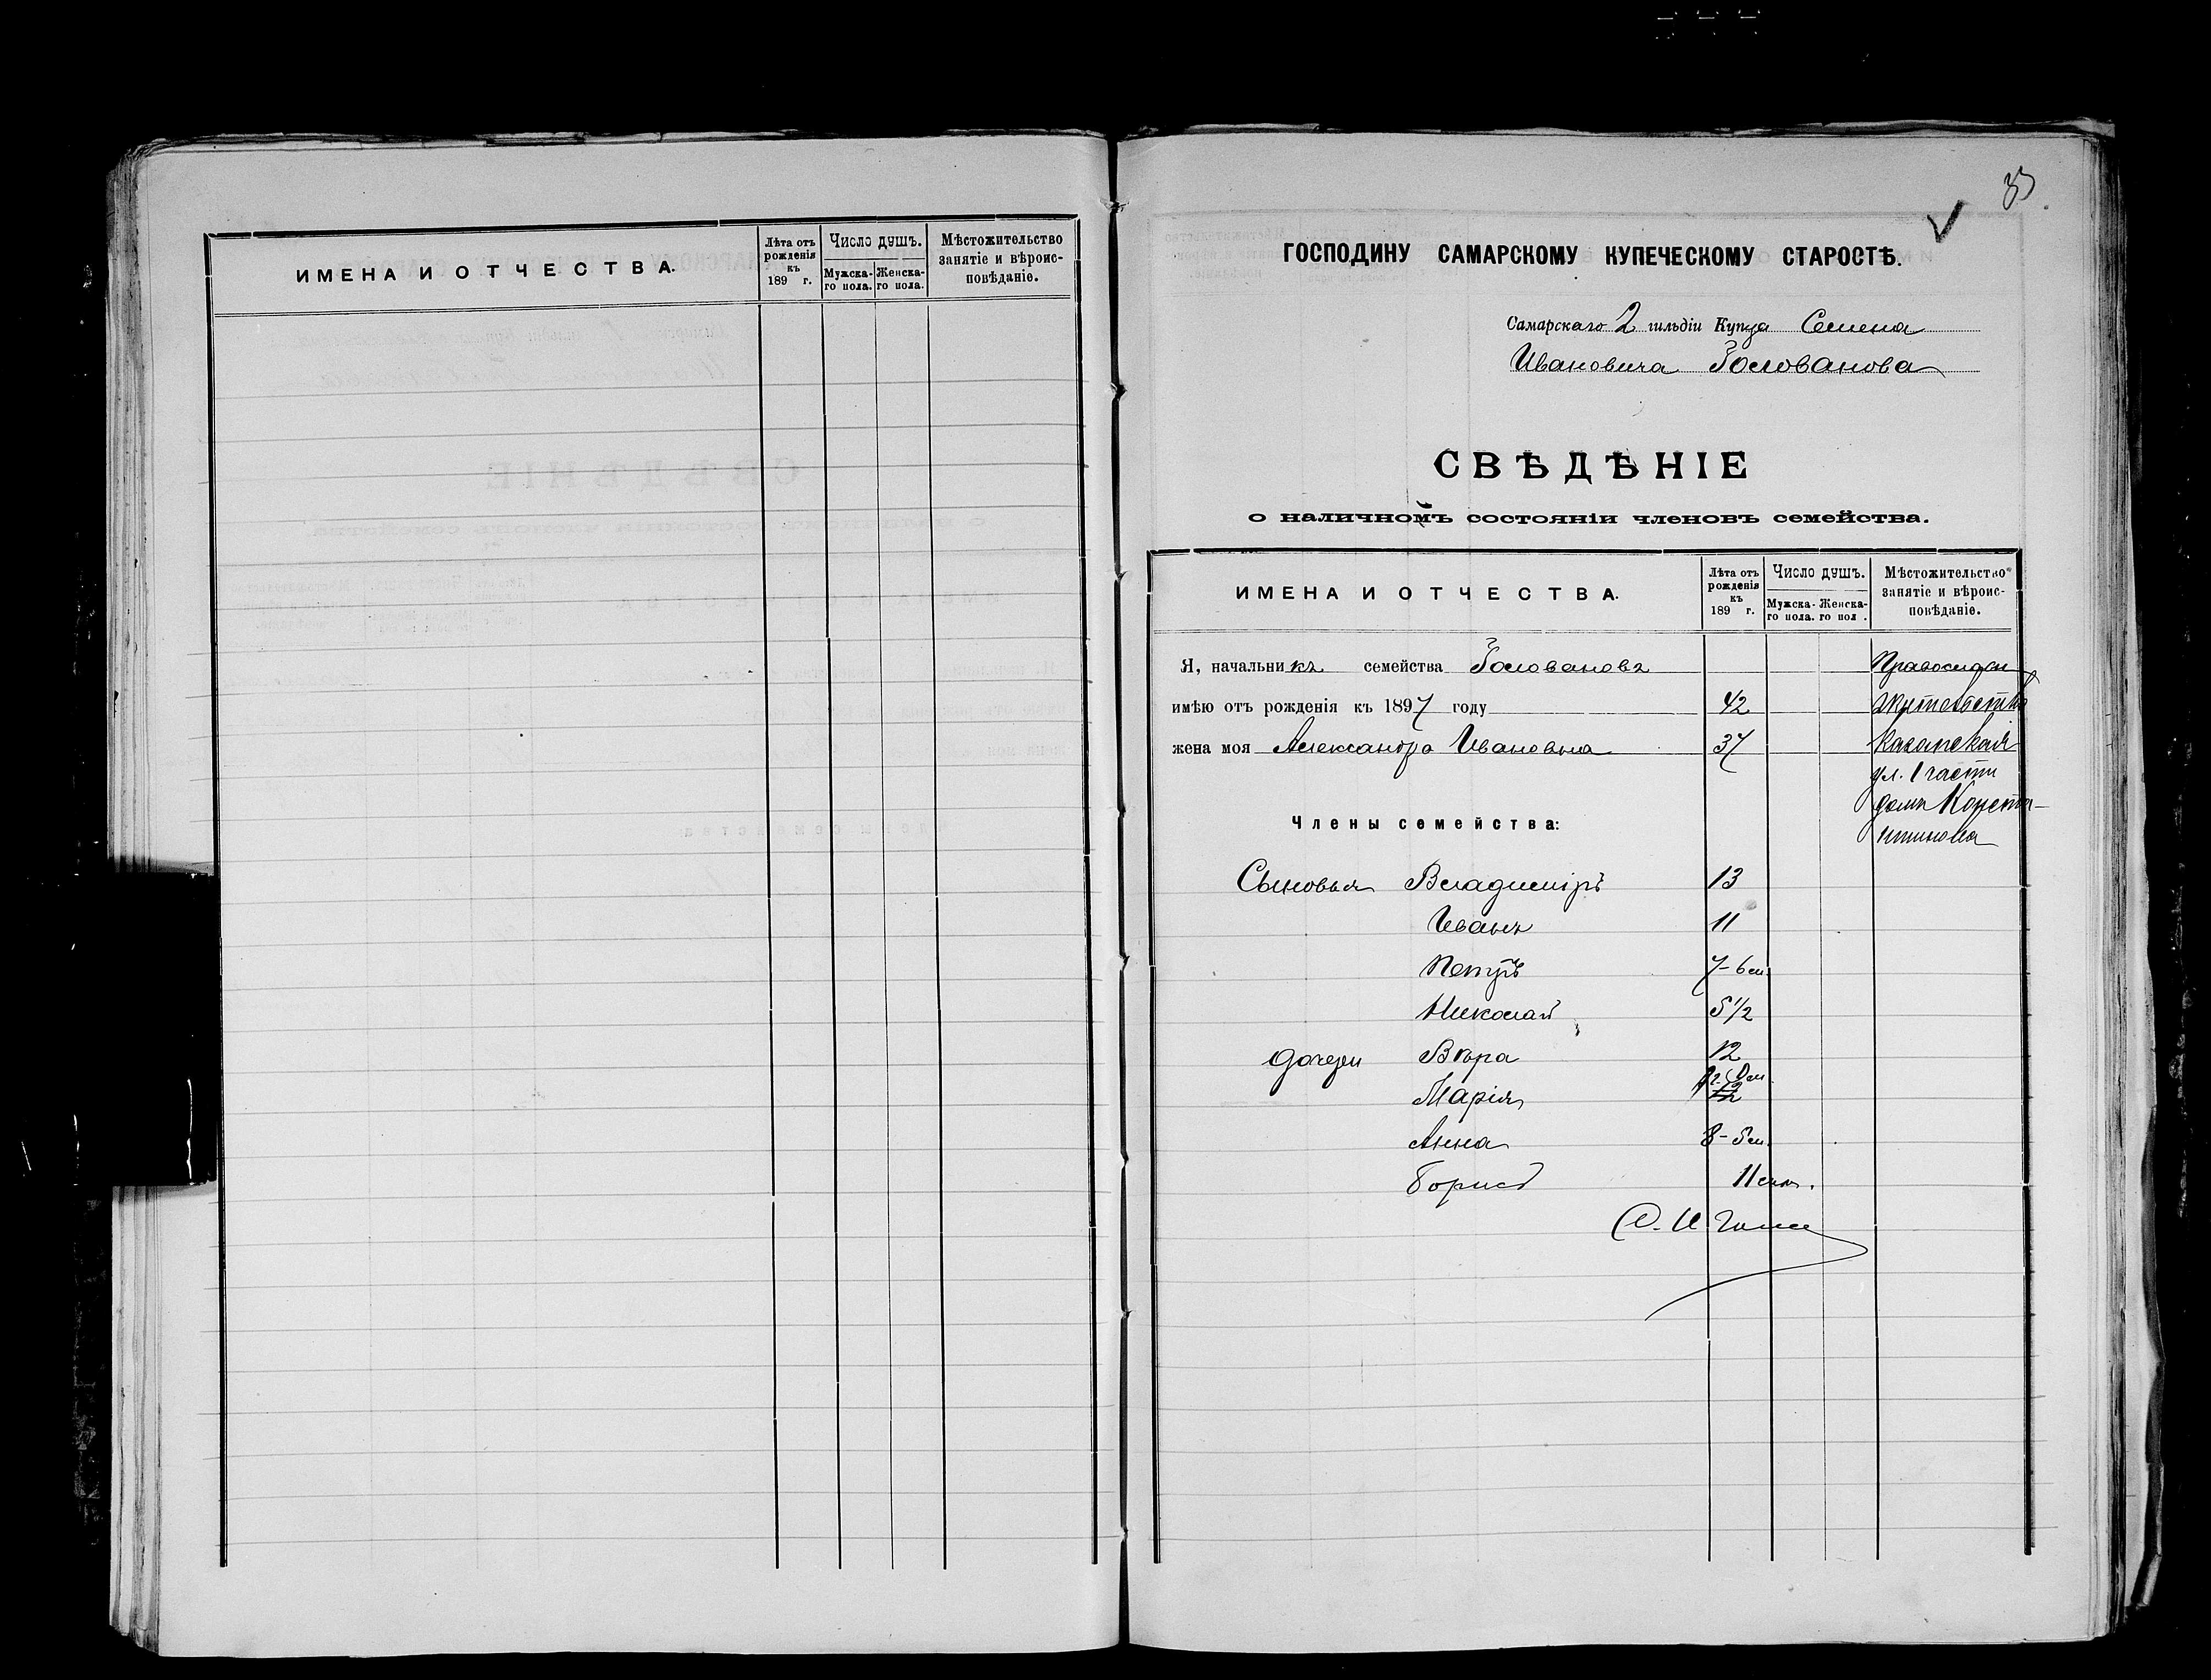 ИМЕНА И ОТЧЕСТВА.
Лѣта отъ рожденія къ 189 г.
Число душъ.
Мужска-го пола.
Женска-го пола.
Мѣстожительство занятіе и вѣроис-повѣданіе.
ГОСПОДИНУ САМАРСКОМУ КУПЕЧЕСКОМУ СТАРОСТѢ.
Самарскаго 2 гильдіи Купца Семена
Ивановича Голованова
СВѢДѢНІЕ
о наличномъ состояніи членовъ семейства.
ИМЕНА И ОТЧЕСТВА.
Лѣта отъ рожденія къ 189 г.
Число душъ.
Мужска-го пола.
Женска-го пол .
Мѣстожительство занятіе и вѣроис-повѣданіе.
Я, начальникъ семейства Головановъ
имѣю отъ рожденія къ 1897 году 42
жена моя Александра Ивановна 37
Казанская
ул. 1 части
домъ Конста-
нтинова
Члены семейства:
Сыновья Владиміръ 13
Иванъ 11
Петръ 7-6 м.
Николай 5 1/2
дочери Вѣра 12
Марія
Анна 8-5 м.
Борисъ 11 мѣс.
С. И. Голов